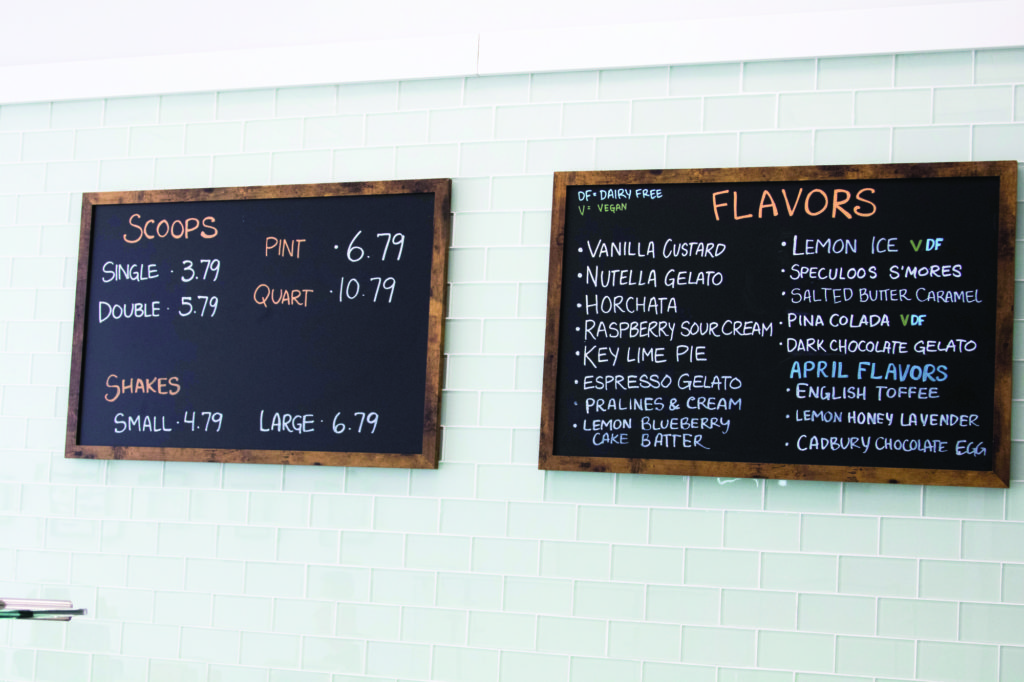 SCOOPS
SINGLE · 3.79
DOUBLE · 5.79
PINT · 6.79
QUART · 10.79
SHAKES
SMALL · 4.79
LARGE · 6.79
DF = DAIRY FREE
V = VEGAN
FLAVORS
· VANILLA CUSTARD
· NUTELLA GELATO
· HORCHATA
· RASPBERRY SOUR CREAM
· KEY LIME PIE
· ESPRESSO GELATO
· PRALINES & CREAM
· LEMON BLUEBERRY
CAKE BATTER
· LEMON ICE V DF
· SPECULOOS S'MORES
· SALTED BUTTER CARAMEL
· PINA COLADA V DF
· DARK CHOCOLATE GELATO
APRIL FLAVORS
· ENGLISH TOFFEE
· LEMON HONEY LAVENDER
· CADBURY CHOCOLATE EGG